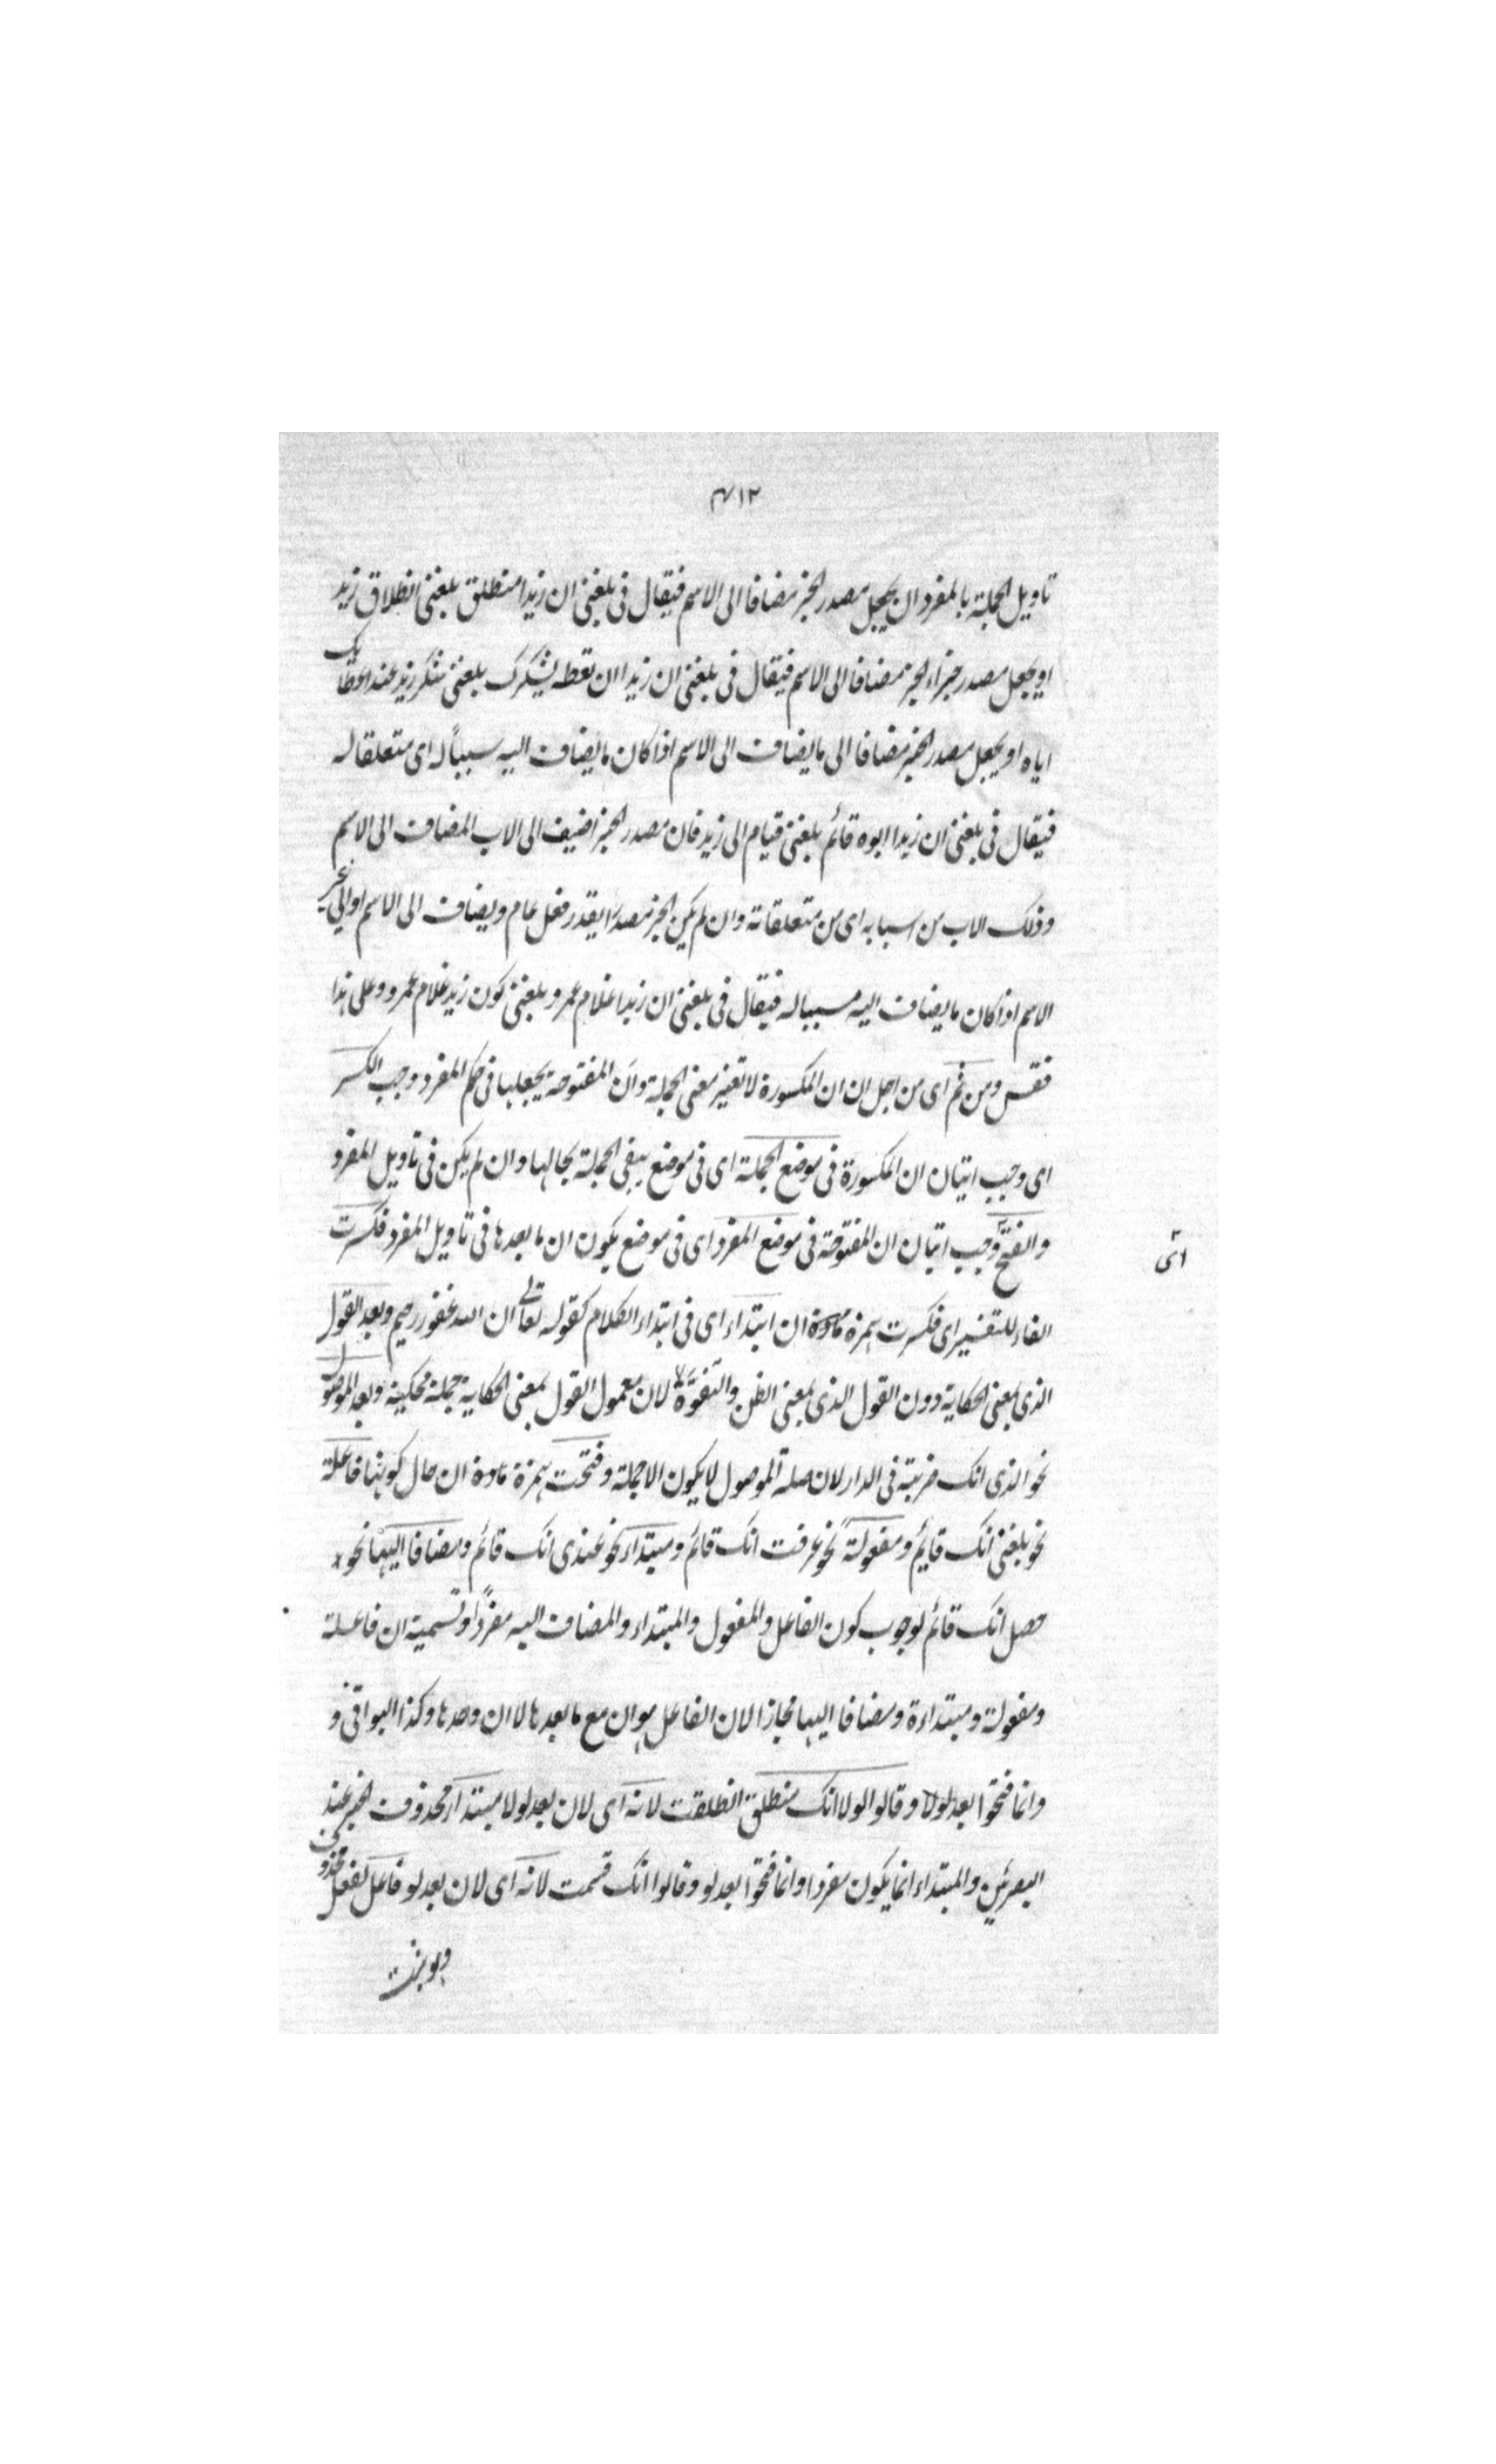 ٤١٢
تاويل الجملة بالمفرد ان يجعل مصدر الخبر مضافا الى الاسم فيقال فى بلغنى ان زيدا منطلق بلغنى انطلاق زيد
او يجعل مصدر جزاء الخبر مضافا الى الاسم فيقال فى بلغنى ان زيدا ان تعطه يشكرك بلغنى شكر زيد عند اعطائك
اياه او يجعل مصدر الخبر مضافا الى ما يضاف الى الاسم اذا كان ما يضاف اليه سببًا له اى متعلقا له
فيقال فى بلغنى ان زيدا ابوه قائم بلغنى قيام ابى زيد فان مصدر الخبر اضيف الى الاب المضاف الى الاسم
وذلك الاب من اسبابه اى من متعلقاته وان لم يكن الخبر مصدرًا يقدر فعل عام ويضاف الى الاسم او الى غير
الاسم اذا كان ما يضاف اليه مسببا له فيقال فى بلغنى ان زيدا غلام عمرو بلغنى كون زيد غلام عمرو وعلى هذا
فقس ومن ثم اى من اجل ان ان المكسورة لا تغير معنى الجملة وان المفتوحة يجعلها فى حكم المفرد وجب الكسر
اى وجب اتيان ان المكسورة فى موضع الجملة اى فى موضع يبقى الجملة بحالها وان لم يكن فى تاويل المفرد
والفتح وجب اتيان ان المفتوحة فى موضع المفرد اى فى موضع يكون ان ما بعدها فى تاويل المفرد فكسرت
اى
الفاء للتفسير اى فكسرت همزة مادة ان ابتداء اى فى ابتداء الكلام كقوله تعالى ان الله غفور رحيم وبعد القول
الذى بمعنى الحكاية دون القول الذى بمعنى الظن والتفوه لان معمول القول بمعنى الحكاية جملة محكية وبعد الموصول
نحو الذى انك ضربته فى الدار لان صلة الموصول لا يكون الا جملة وفتحت همزة مادة ان حال كونها فاعلة
نحو بلغنى انك قايم ومفعولة نحو عرفت انك قائم ومبتداء نحو عندى انك قائم ومضافا اليها نحو
حصل انك قائم لوجوب كون الفاعل والمفعول والمبتداء والمضاف اليه مفردًا وتسمية ان فاعلة
ومفعولة ومبتداءة ومضافا اليها مجازا لان الفاعل هو ان مع ما بعدها لا ان وحدها وكذا البواقى و
وانما فتحوا بعد لولا وقالوا لولا انك منطلق انطلقت لانه اى لان بعد لولا مبتدا محذوف الخبر عند
البصريين والمبتداء انما يكون مفردا وانما فتحوا بعد لو وقالوا انك قمت لانه اى لان بعد لو فاعل لفعل محذوف